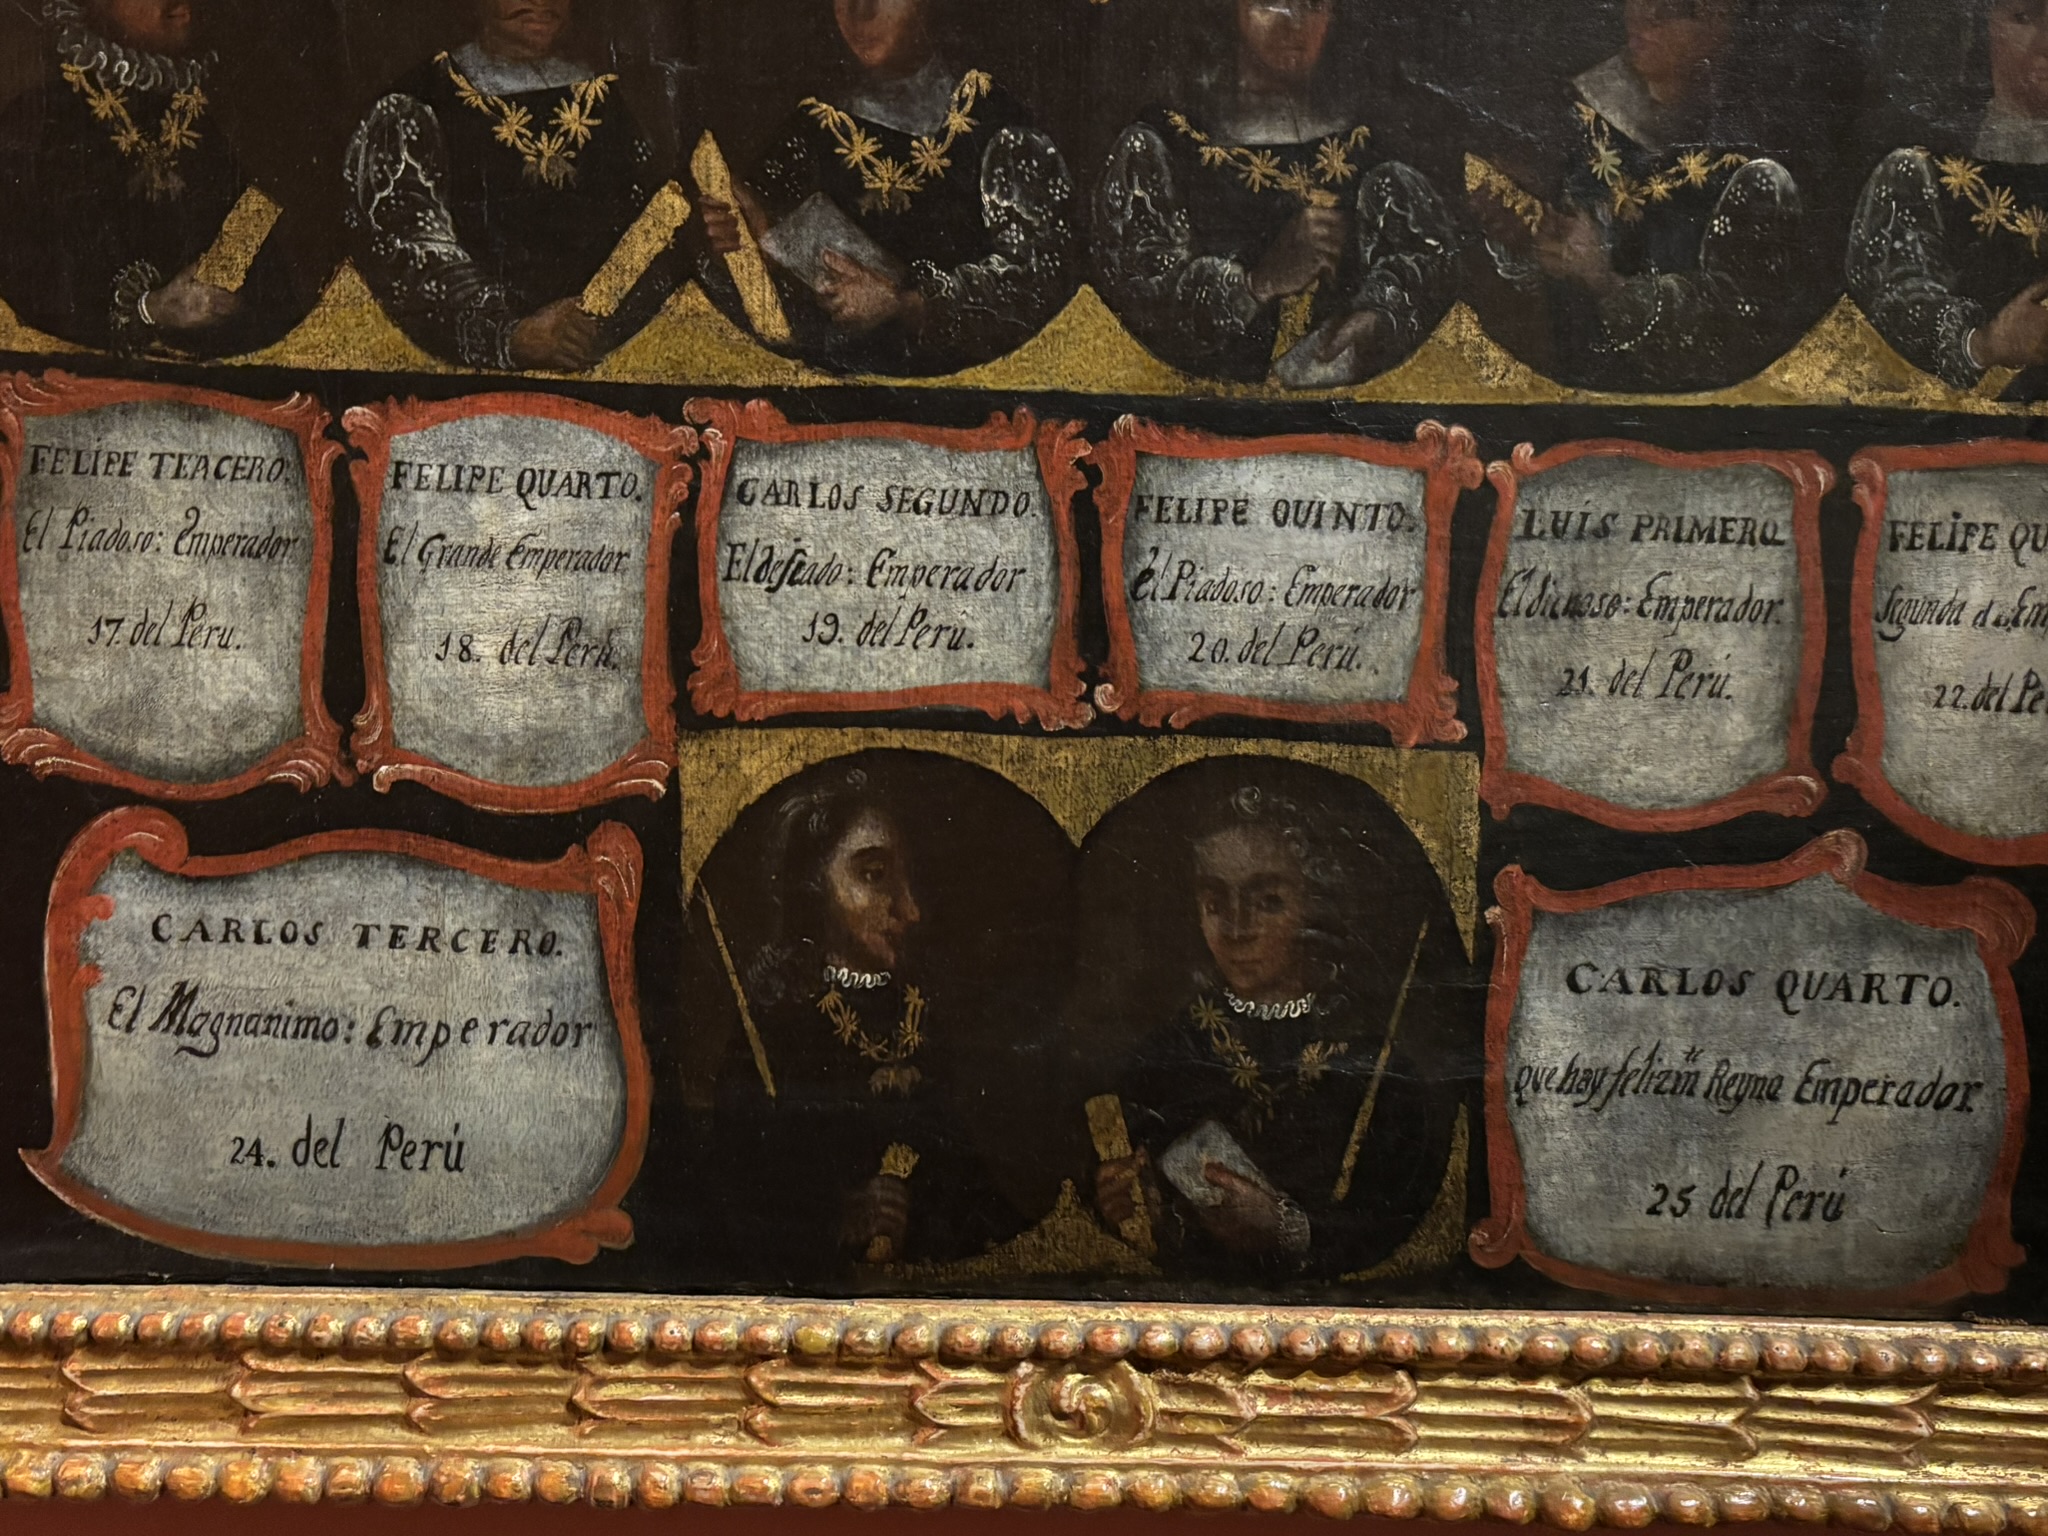 FELIPE TERCERO.
El Piadoso: Emperador
17. del Peru.
FELIPE QUARTO.
El Grande Emperador
18. del Perú.
CARLOS SEGUNDO.
El deseado: Emperador
19. del Perú.
FELIPE QUINTO.
el Piadoso: Emperador
20. del Perú.
LUÍS PRIMERO
Emperador.
21. del Perú.
FELIPE QU
Segunda
22. del Pe
CARLOS TERCERO.
El Magnanimo: Emperador
24. del Perú
CARLOS QUARTO.
que hay felizm.te Reyna Emperador.
25 del Perú